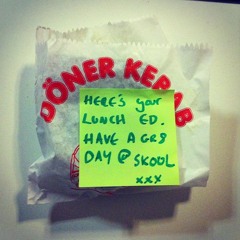 DÖNER KEBAB
HERE'S your
LUNCH ED.
HAVE A GR8
DAY @ SKOOL
xxx